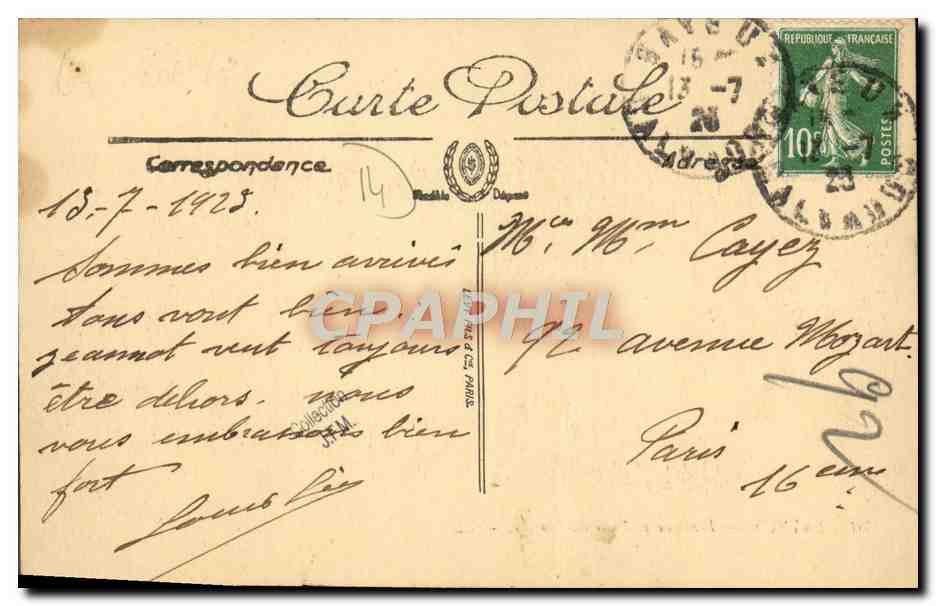 Carte Postale
Correspondence
Adresse
Modèle Déposé
RÉPUBLIQUE FRANÇAISE
10c
POSTES
13 -7
14
13-7-1923.
Sommes bien arrivés
tous vont bien.
Jeannot veut toujours
être dehors. nous
vous embrassons bien
fort
Mce Mm Cayez
92 avenue Mozart.
Paris
16eme
92
LÉVY FILS & Cie, PARIS.
Collection
J.F.M.
CPAPHIL